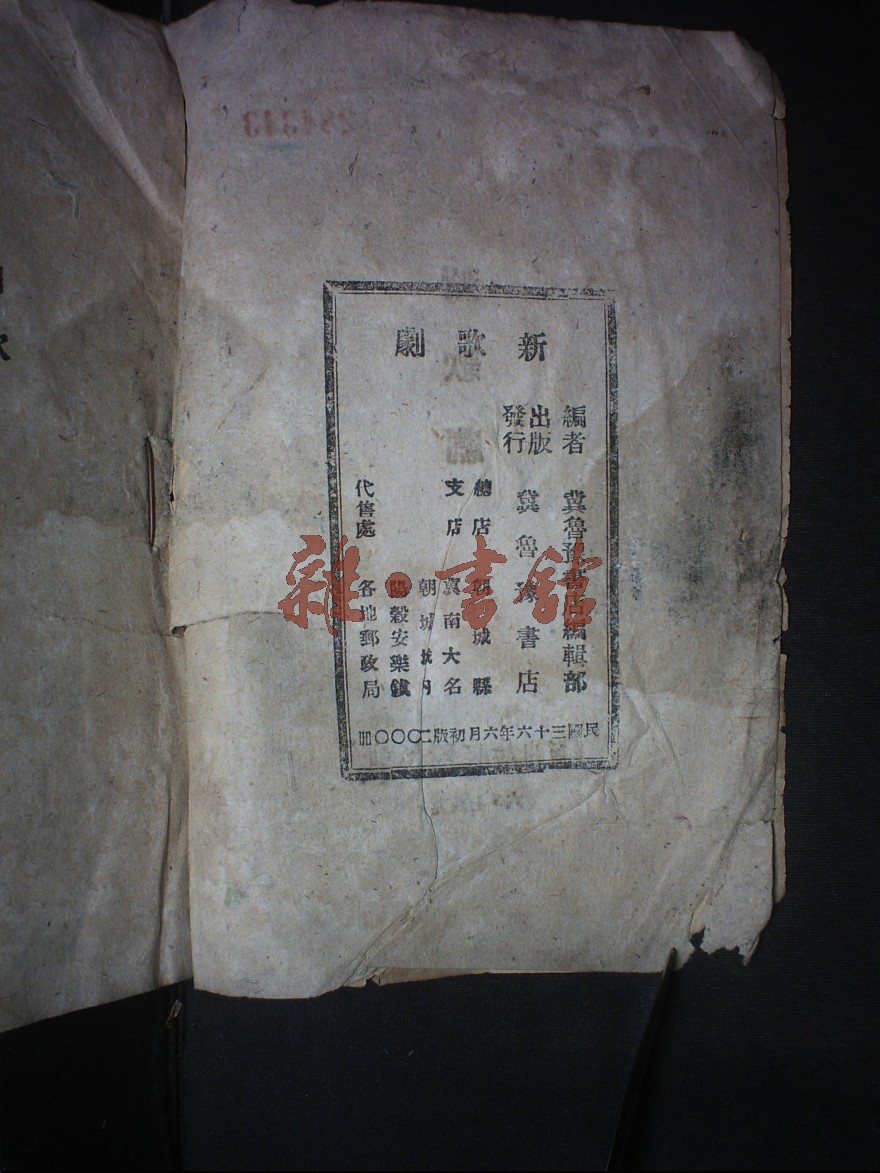 新歌劇
編者 冀魯豫書店編輯部
出版
發行 冀魯豫書店
總店 朝城縣
支店 冀南大名
朝城城內
陽穀安樂鎮
代售處 各地郵政局
民國三十六年六月初版二〇〇〇冊
雜·書館
284343